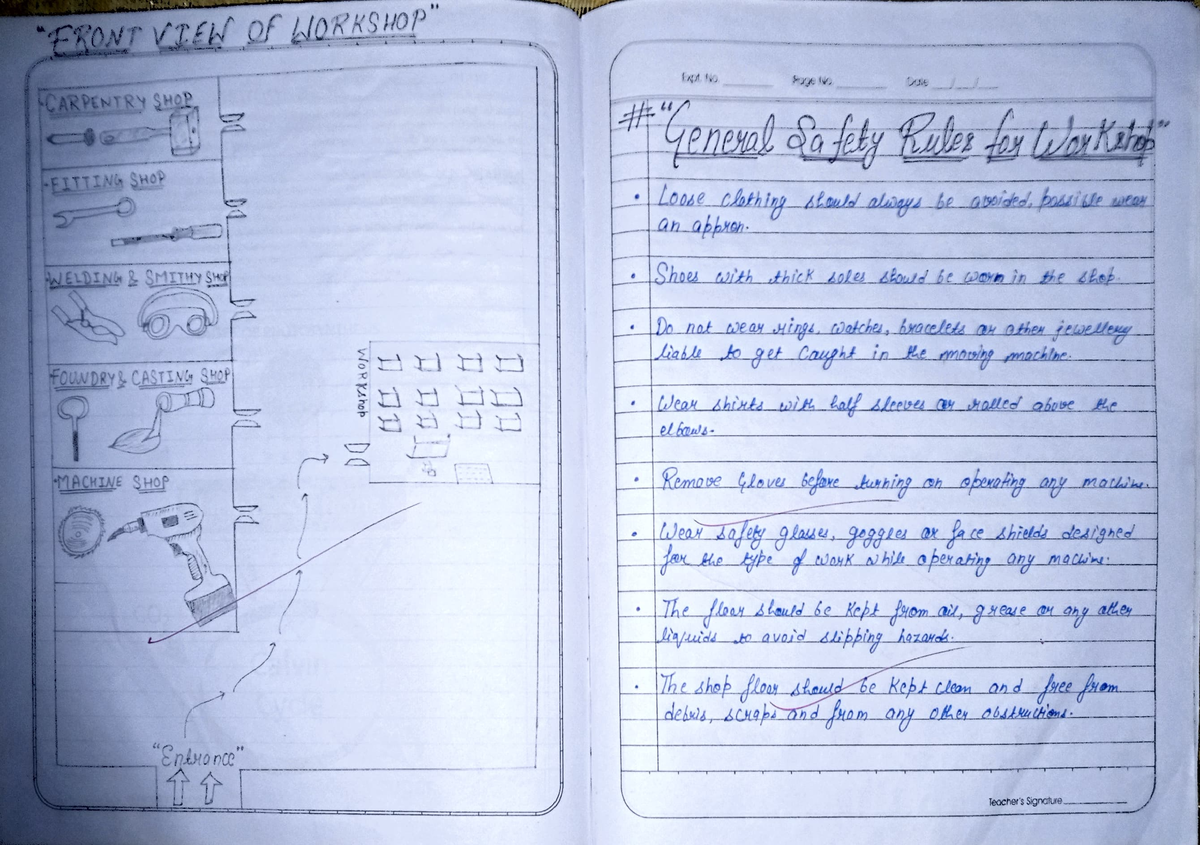 "FRONT VIEW OF WORKSHOP"
·CARPENTRY SHOP
·FITTING SHOP
·WELDING & SMITHY SHOP
FOUNDRY & CASTING SHOP
·MACHINE SHOP
Workshop
"Entrance"
Expt. No. ________ Page No. ________ Date __/__/__
# "General Safety Rules for Workshop"
• Loose clathing should always be avoided, possible wear
an appron.
• Shoes with thick soles should be worn in the shop.
• Do not wear rings, watches, bracelets or other jewellery
liable to get Caught in the moving machine.
• Wear shirts with half sleeves or rolled above the
elbows.
• Remove Gloves before turning on operating any machine.
• Wear safety glasses, goggles or face shields designed
for the type of work while operating any machine.
• The floor should be Kept from oil, grease or any other
liquids to avoid slipping hazards.
• The shop floor should be Kept clean and free from
debris, scraps and from any other obstructions.
Teacher's Signature ________